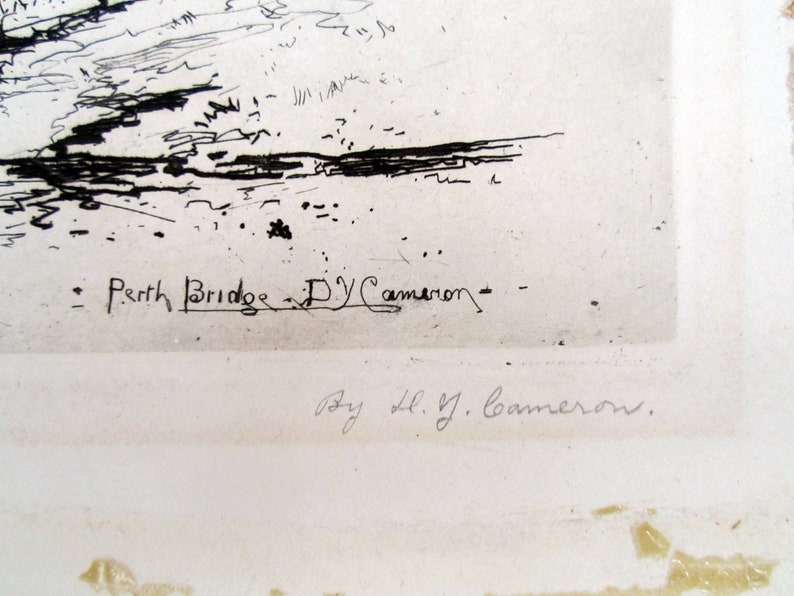 Perth Bridge - D Y Cameron -
By D. Y. Cameron.